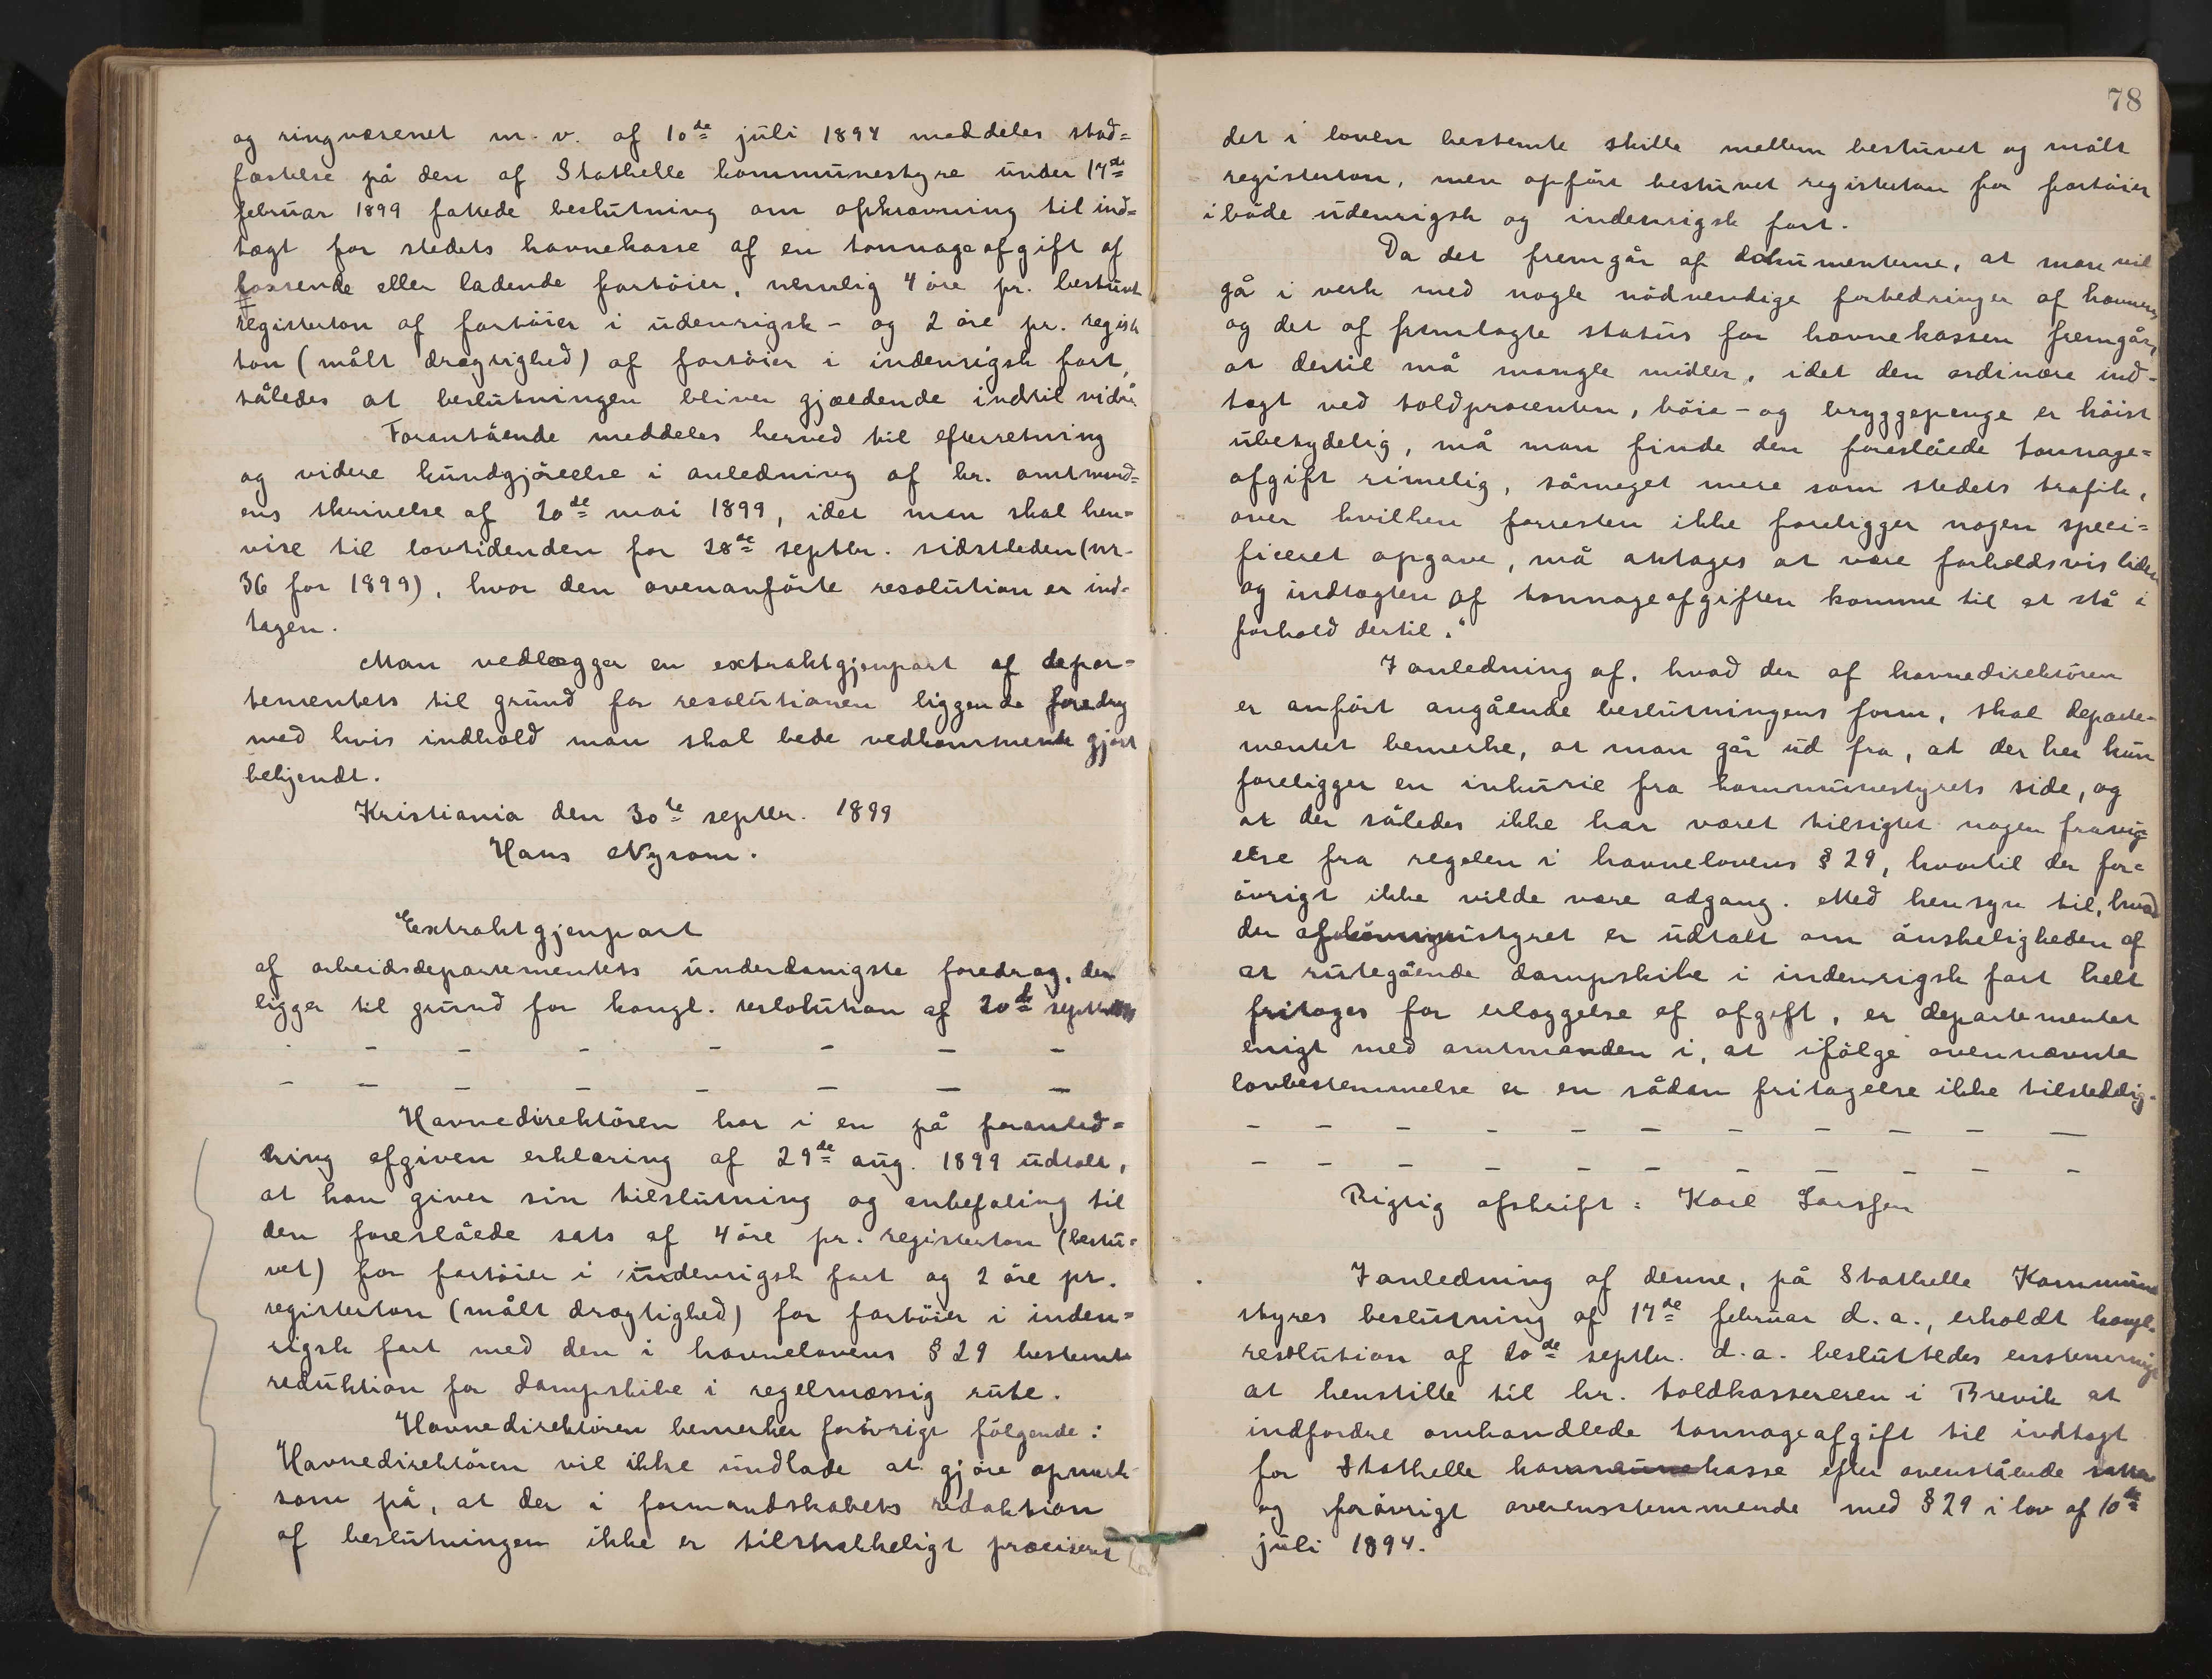 og ringvæsenet m. v. af 10de juli 1894 meddeles stad=
fæstelse på den af Stathelle kommunestyre under 17de
februar 1899 fattede beslutning om opkrævning til ind=
tægt for stedets havnekasse af en tonnageafgift af
lossende eller ladende fartöier, nemlig 4 öre pr. bestuvet
registerton af fartöier i udenrigsk - og 2 öre pr. regist
ton (målt drægtighed) af fartöier i indenrigsk fart,
således at beslutningen bliver gjældende indtil videre
Foranstående meddeles herved til efterretning
og videre kundgjörelse i anledning af hr. amtmand=
ens skrivelse af 20de mai 1899, idet man skal hen=
vise til lovtidenden for 28de septbr. sidstleden (nr.
36 for 1899), hvor den ovenanförte resolution er ind=
tagen.
Man vedlægger en extraktgjenpart af depar=
tementets til grund for resolutionen liggende foredrag
med hvis indhold man skal bede vedkommende gjort
bekjendt.
Kristiania den 30te septbr. 1899
Hans Nysom.
Extraktgjenpart
af arbeidsdepartementets underdanigste foredrag, der
ligger til grund for kongl. reslolution af 20de septbr
- - - - - - - -
- - - - - - - -
Havnedirektören har i en på foranled=
ning afgiven erklæring af 29de aug. 1899 udtalt,
at han giver sin tilslutning og anbefaling til
den foreslåede sats af 4 öre pr. registerton (bestu=
vet) for fartöier i udenrigsk fart og 2 öre pr.
registerton (målt drægtighed) for fartöier i inden=
rigsk fart med den i havnelovens § 29 bestemte
reduktion for dampskibe i regelmæssig rute.
Havnedirektören bemerker forövrigt fölgende:
Havnedirektören vil ikke undlade at gjöre opmerk-
som på, at der i formandskabets redaktion
af beslutningen ikke er tilstrækkeligt præciseret
78
det i loven bestemte skille mellem bestuvet og målt
registerton, men opfört bestuvet registerton for fartöier
i både udenrigsk og indenrigsk fart.
Da det fremgår af dokumenterne, at man vil
gå i verk med nogle nödvendige forbedringer af havnen,
og det af fremlagte status for havnekassen fremgår,
at dertil må mangle midler, idet den ordinære ind-
tægt ved toldprocenten, böie- og bryggepenge er höist
ubetydelig, må man finde den foreslåede tonnage=
afgift rimelig, såmeget mere som stedets trafik,
over hvilken forresten ikke foreligger nogen speci=
ficeret opgave, må antages at være forholdsvis liden
og indtægten af tonnageafgiften komme til at stå i
forhold dertil."
I anledning af, hvad der af havnedirektören
er anfört angående beslutningens form, skal departe-
mentet bemerke, at man går ud fra, at der her kun
foreligger en inkurie fra kommunestyrets side, og
at der således ikke har været tilsigtet nogen fravig=
else fra regelen i havnelovens § 29, hvortil der for=
övrigt ikke vilde være adgang. Med hensyn til, hvad
der af kommunestyret er udtalt om önskeligheden af
at rutegående dampskibe i indenrigsk fart helt
fritages for erlæggelse af afgift, er departementet
enigt med amtmanden i, at ifölge ovennævnte
lovbestemmelse er en sådan fritagelse ikke tilstedelig.
- - - - - - - - - - -
- - - - - - - - - - -
Rigtig afskrift: Karl Larssen
I anledning af denne, på Stathelle Kommune
styres beslutning af 17de februar d. a., erholdt kongl.
resolution af 20de septbr. d. a. besluttedes enstemmigt
at henstille til hr. toldkassereren i Brevik at
indfordre omhandlede tonnageafgift til indtægt
for Stathelle kommunekasse efter ovenstående satser
og forövrigt overensstemmende med § 29 i lov af 10de
juli 1894.